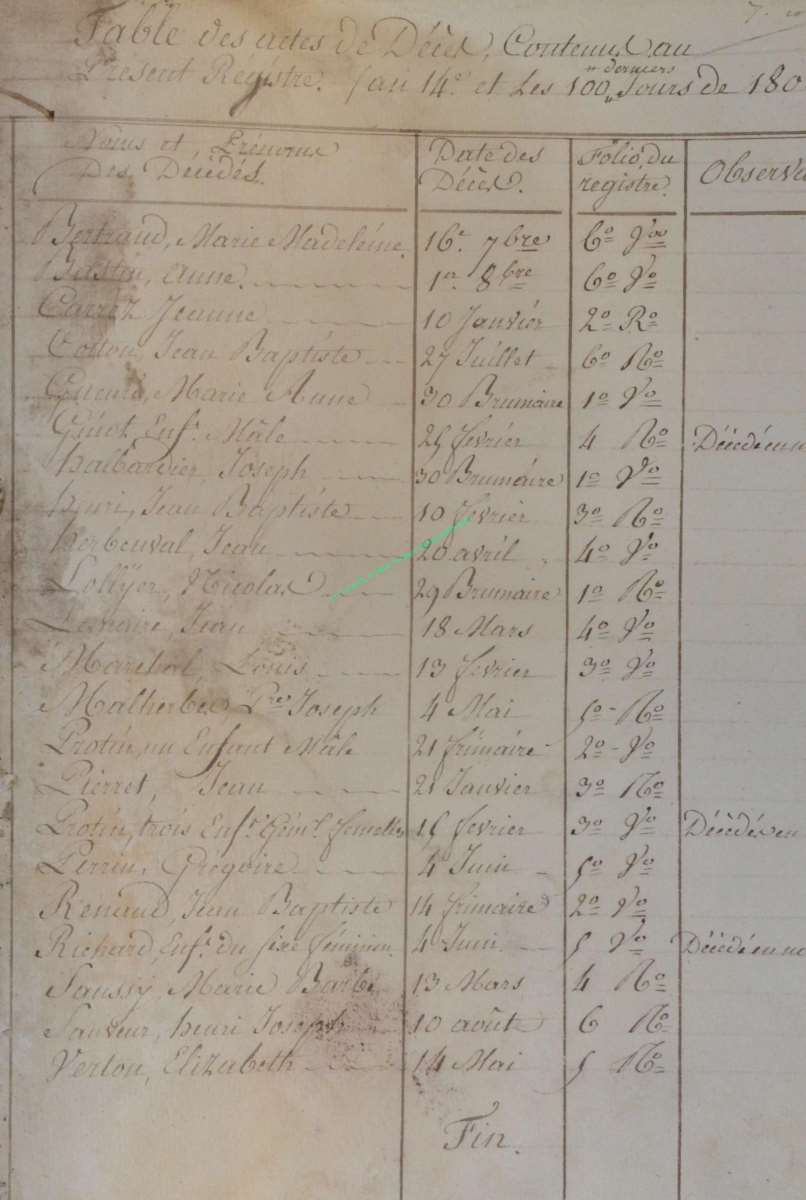 Table des actes de Décès, Contenus au
Présent Régistre. l'an 14e. et Les 100 derniers Jours de 180
Noms et Prénoms Des Décédés. Date des Décès. Folio du registre. Observa
Bertrand, Marie Madeleine. 16e. 7bre 6o Vo
Bastin, Anne. 1er. 8bre 6o Vo
Carrez Jeanne 10 Janviér 2o Ro
Cotton, Jean Baptiste 27 Juillet 6o Ro
Marie Anne 30 Brumaire 1o Vo
Enft. Mâle 25 février 4 Ro Décédé en n
halbardier, Joseph 30 Brumaire 1o Vo
henri, Jean Baptiste 10 février 3o Ro
herbeuval, Jean 20 avril 4o Vo
Nicolas 29 Brumaire 1o Ro
Lemaire, Jean 18 Mars 4o Vo
Maréchal, Louis 13 février 3o Vo
Malherbe, Joseph 4 Mai 5o Ro
Protin, un Enfant Mâle 21 frimaire 2o Vo
Pierret, Jean 21 Janvier 3o Ro
Protin, trois Enfts. femelles 15 fevrier 3o Vo Décédés en
Perrin, Grégoire 4 Juin 5o Vo
Renaud, Jean Baptiste 14 frimaire 2o Vo
Richard, Enft. du sexe féminin. 4 Juin 5 Vo Décédé en n
Saussy, Marie Barbe 13 Mars 4 Ro
Sauveur, henri Joseph 10 août 6 Ro
Verlon, Elizabeth 14 Mai 5 Ro
Fin.